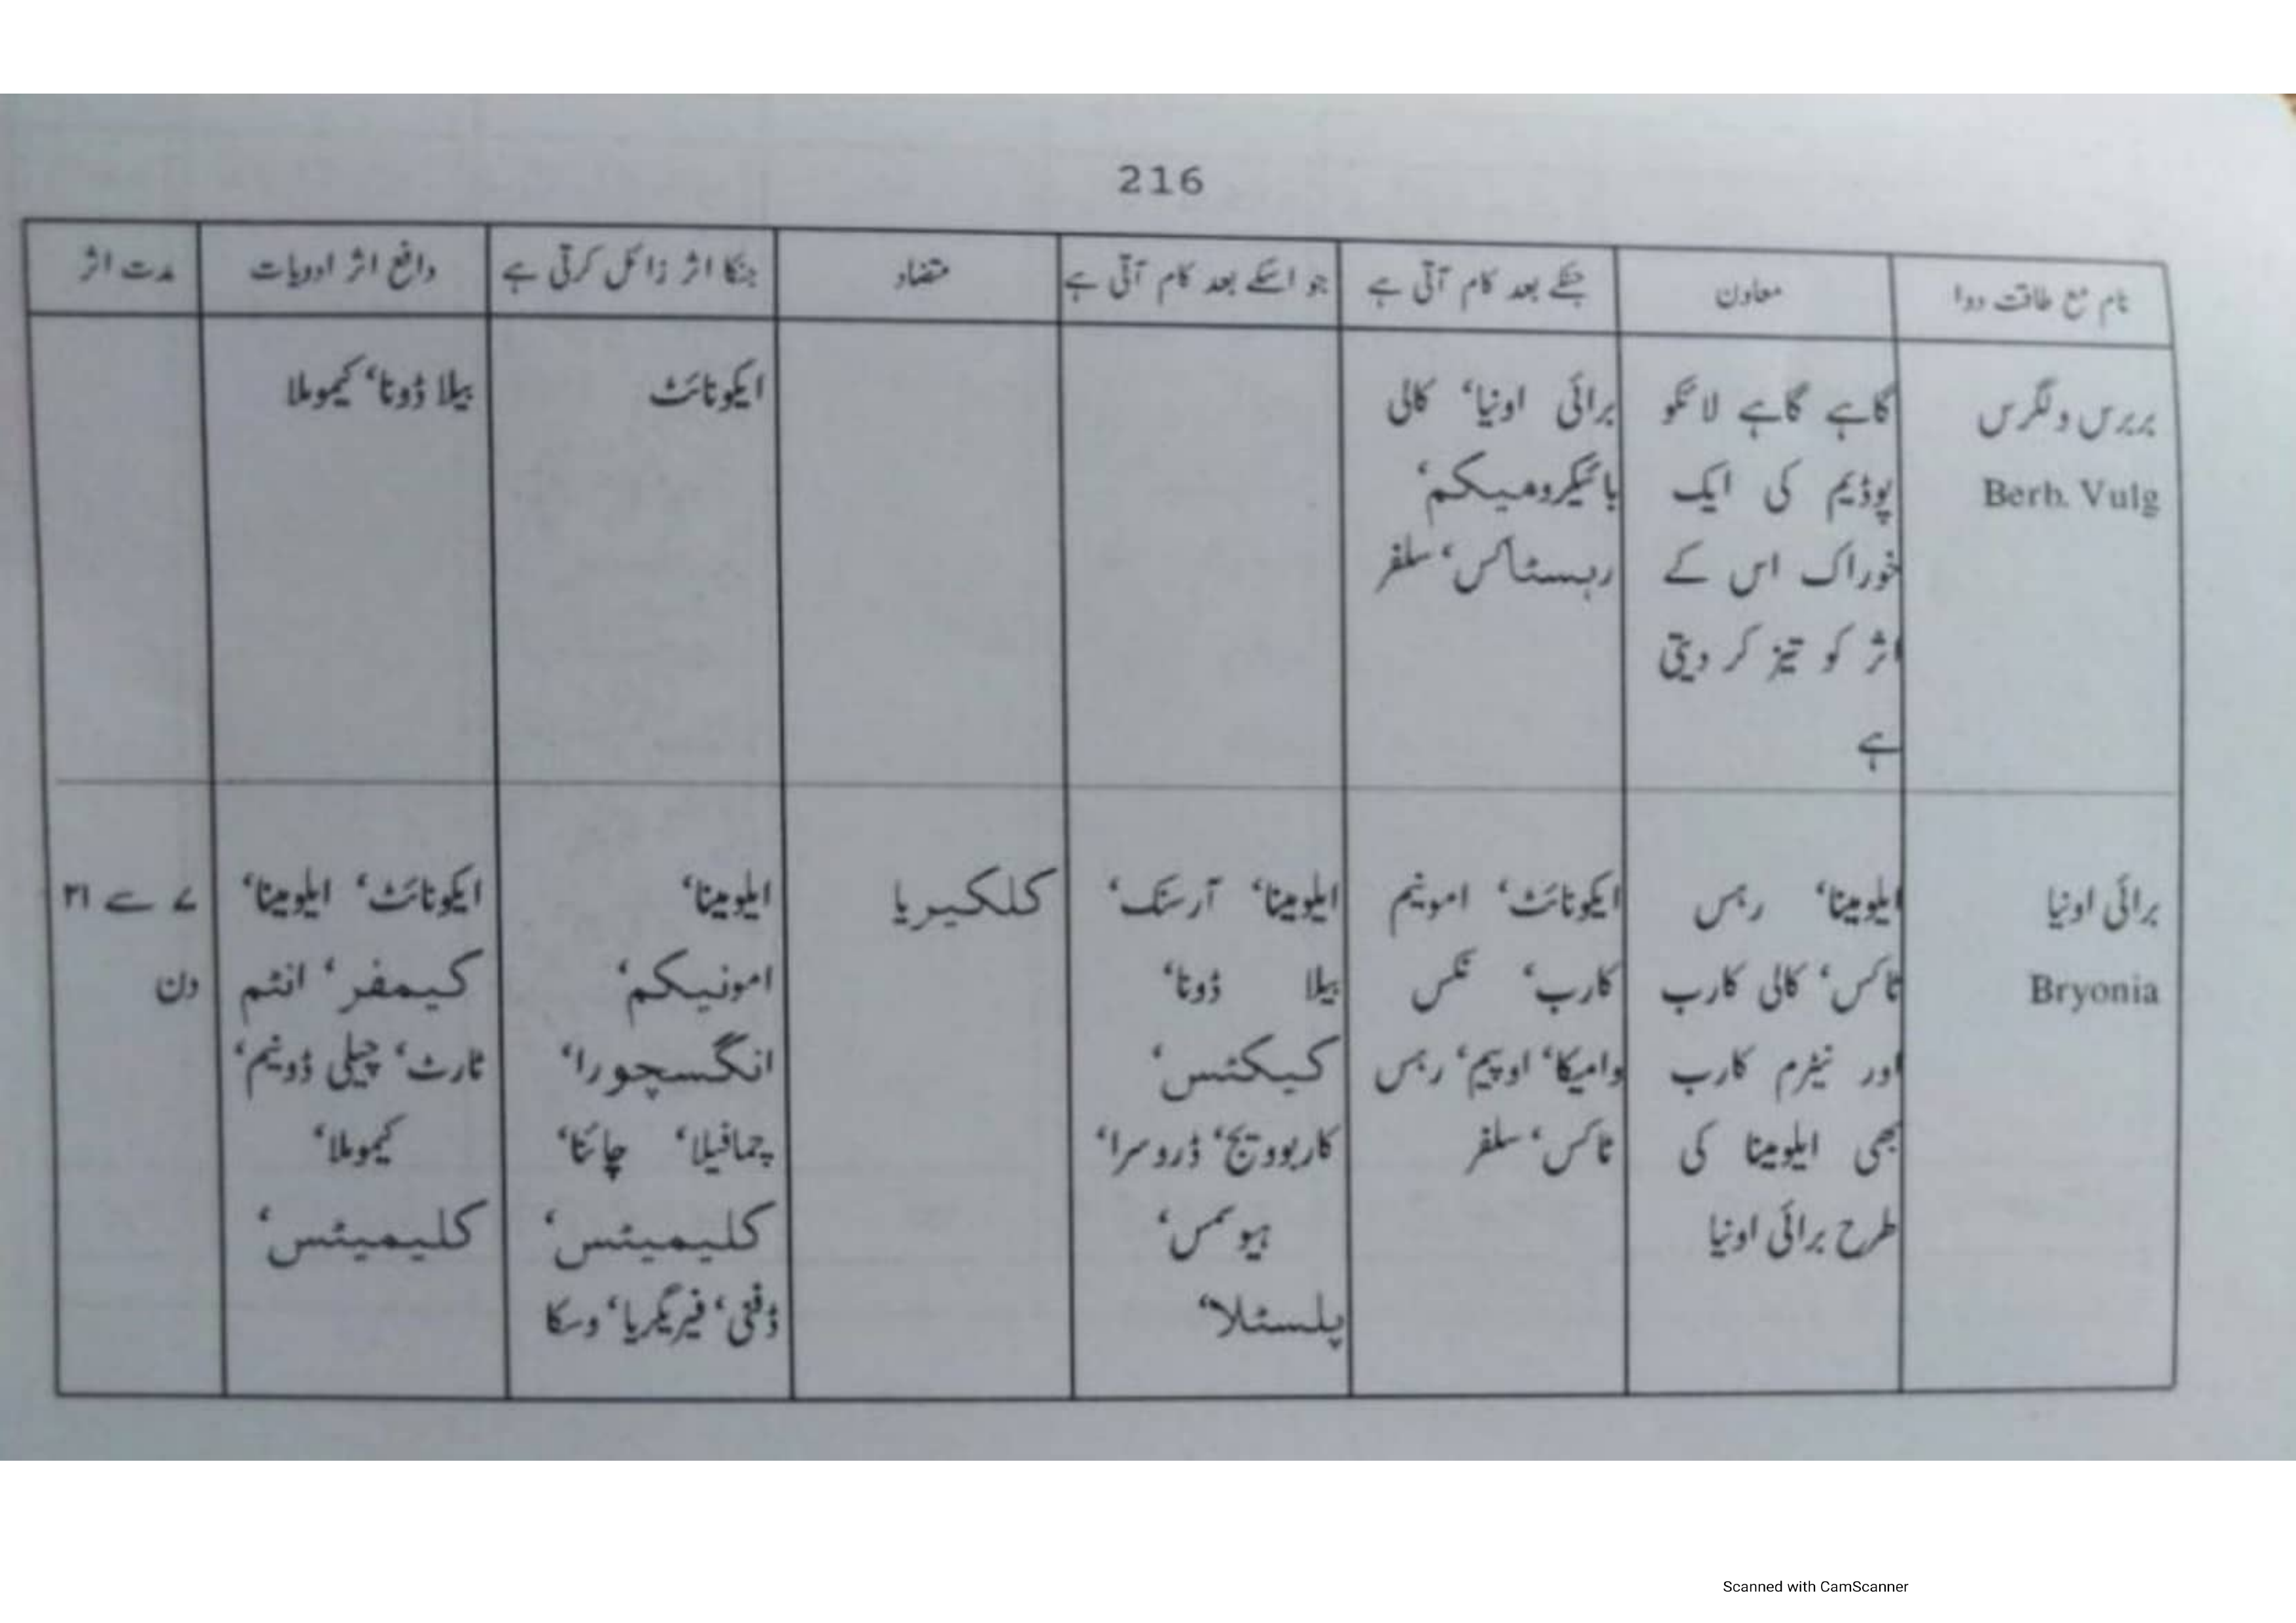 216
نام مع طاقت دوا
معاون
جنکے بعد کام آتی ہے
جو اسکے بعد کام آتی ہے
متضاد
جنکا اثر زائل کرتی ہے
دافع اثر ادویات
مدت اثر
بربرس ولگرس
Berb. Vulg
گاہے گاہے لائکو
پوڈیم کی ایک
خوراک اس کے
اثر کو تیز کر دیتی
ہے
برائی اونیا‘ کالی
بائیکرومیکم‘
رہسٹاکس‘ سلفر
ایکونائٹ
بیلا ڈونا‘ کیموملا
برائی اونیا
Bryonia
ایلومینا‘ رہس
ٹاکس‘ کالی کارب
اور نیٹرم کارب
بھی ایلومینا کی
طرح برائی اونیا
ایکونائٹ‘ امونیم
کارب‘ نکس
وامیکا‘ اوپیم‘ رہس
ٹاکس‘ سلفر
ایلومینا‘ آرسنک‘
بیلا ڈونا‘
کیکٹس‘
کاربوویج‘ ڈروسرا‘
ہیوسمس‘
پلسٹلا‘
کلکیریا
ایلومینا‘
امونیکم‘
انگسچورا‘
چمافیلا‘ چائنا‘
کلیمیٹس‘
ڈفنی‘ فیریگریا‘ وسکا
ایکونائٹ‘ ایلومینا‘
کیمفر‘ انٹم
ٹارٹ‘ چیلی ڈونیم‘
کیموملا‘
کلیمیٹس‘
۷ سے ۲۱
دن
Scanned with CamScanner